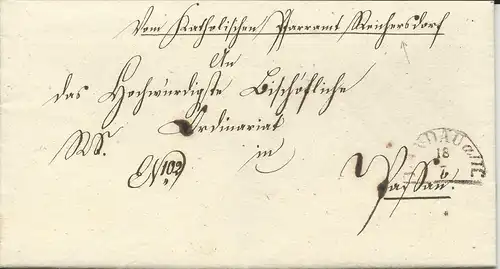 Vom Katholischen Pfarramt Reichersdorf
An
das Hochwürdigste Bischöfliche
Ordinariat
in
RS.
EN 102
Passau.
LANDAU a/I.
18
6